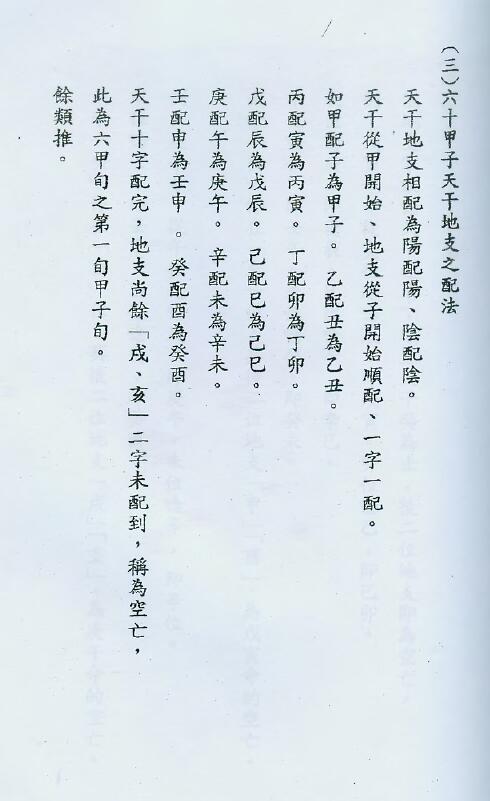 (三)六十甲子天干地支之配法
天干地支相配為陽配陽、陰配陰。
天干從甲開始、地支從子開始順配、一字一配。
如甲配子為甲子。乙配丑為乙丑。
丙配寅為丙寅。丁配卯為丁卯。
戊配辰為戊辰。己配巳為己巳。
庚配午為庚午。辛配未為辛未。
壬配申為壬申。癸配酉為癸酉。
天干十字配完，地支尚餘「戌、亥」二字未配到，稱為空亡，
此為六甲旬之第一旬甲子旬。
餘類推。